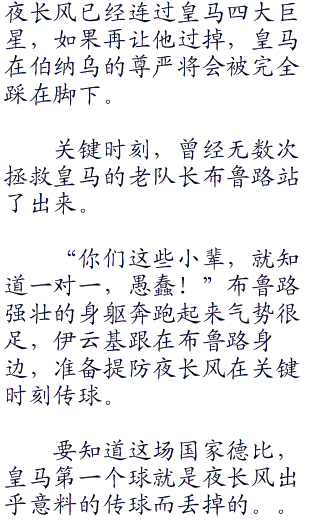 夜长风已经连过皇马四大巨
星，如果再让他过掉，皇马
在伯纳乌的尊严将会被完全
踩在脚下。
关键时刻，曾经无数次
拯救皇马的老队长布鲁路站
了出来。
“你们这些小辈，就知
道一对一，愚蠢！”布鲁路
强壮的身躯奔跑起来气势很
足，伊云基跟在布鲁路身
边，准备提防夜长风在关键
时刻传球。
要知道这场国家德比，
皇马第一个球就是夜长风出
乎意料的传球而丢掉的。。